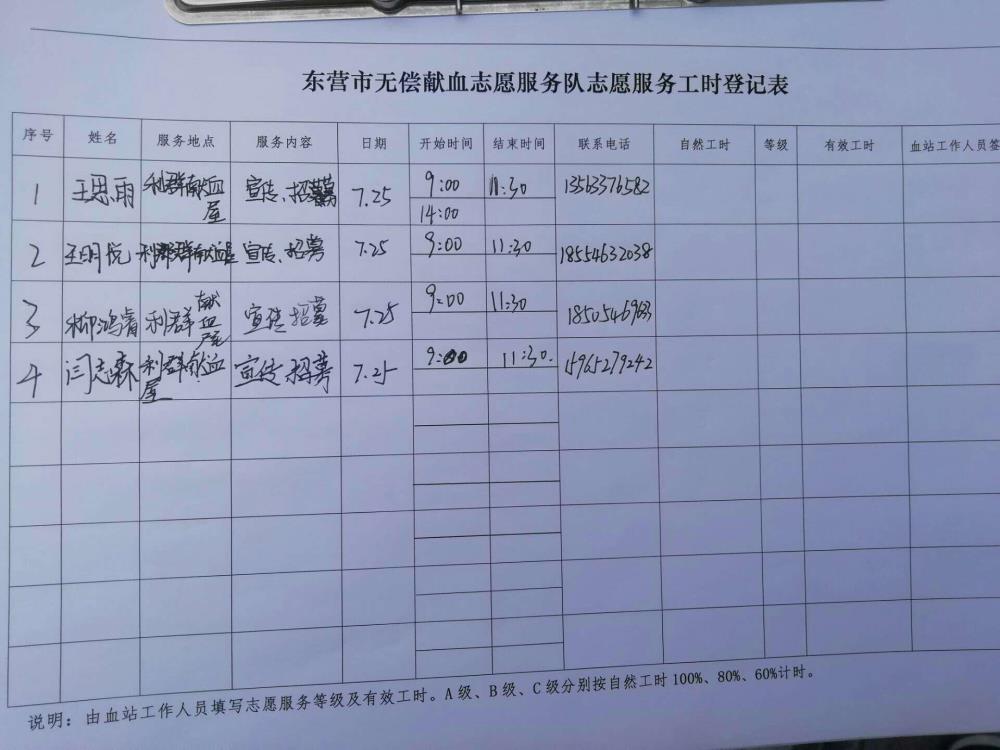 东营市无偿献血志愿服务队志愿服务工时登记表
序号 姓名 服务地点 服务内容 日期 开始时间 结束时间 联系电话 自然工时 等级 有效工时 血站工作人员签
1 王思雨 利群献血屋 宣传、招募 7.25 9:00 11:30 13513376582
14:00
2 王明悦 利群献血屋 宣传、招募 7.25 9:00 11:30 18554632038
3 柳鸿睿 利群献血屋 宣传招募 7.25 9:00 11:30
4 闫志森 利群献血屋 宣传、招募 7.25 9:00 11:30. 15965279242
说明：由血站工作人员填写志愿服务等级及有效工时。A级、B级、C级分别按自然工时100%、80%、60%计时。